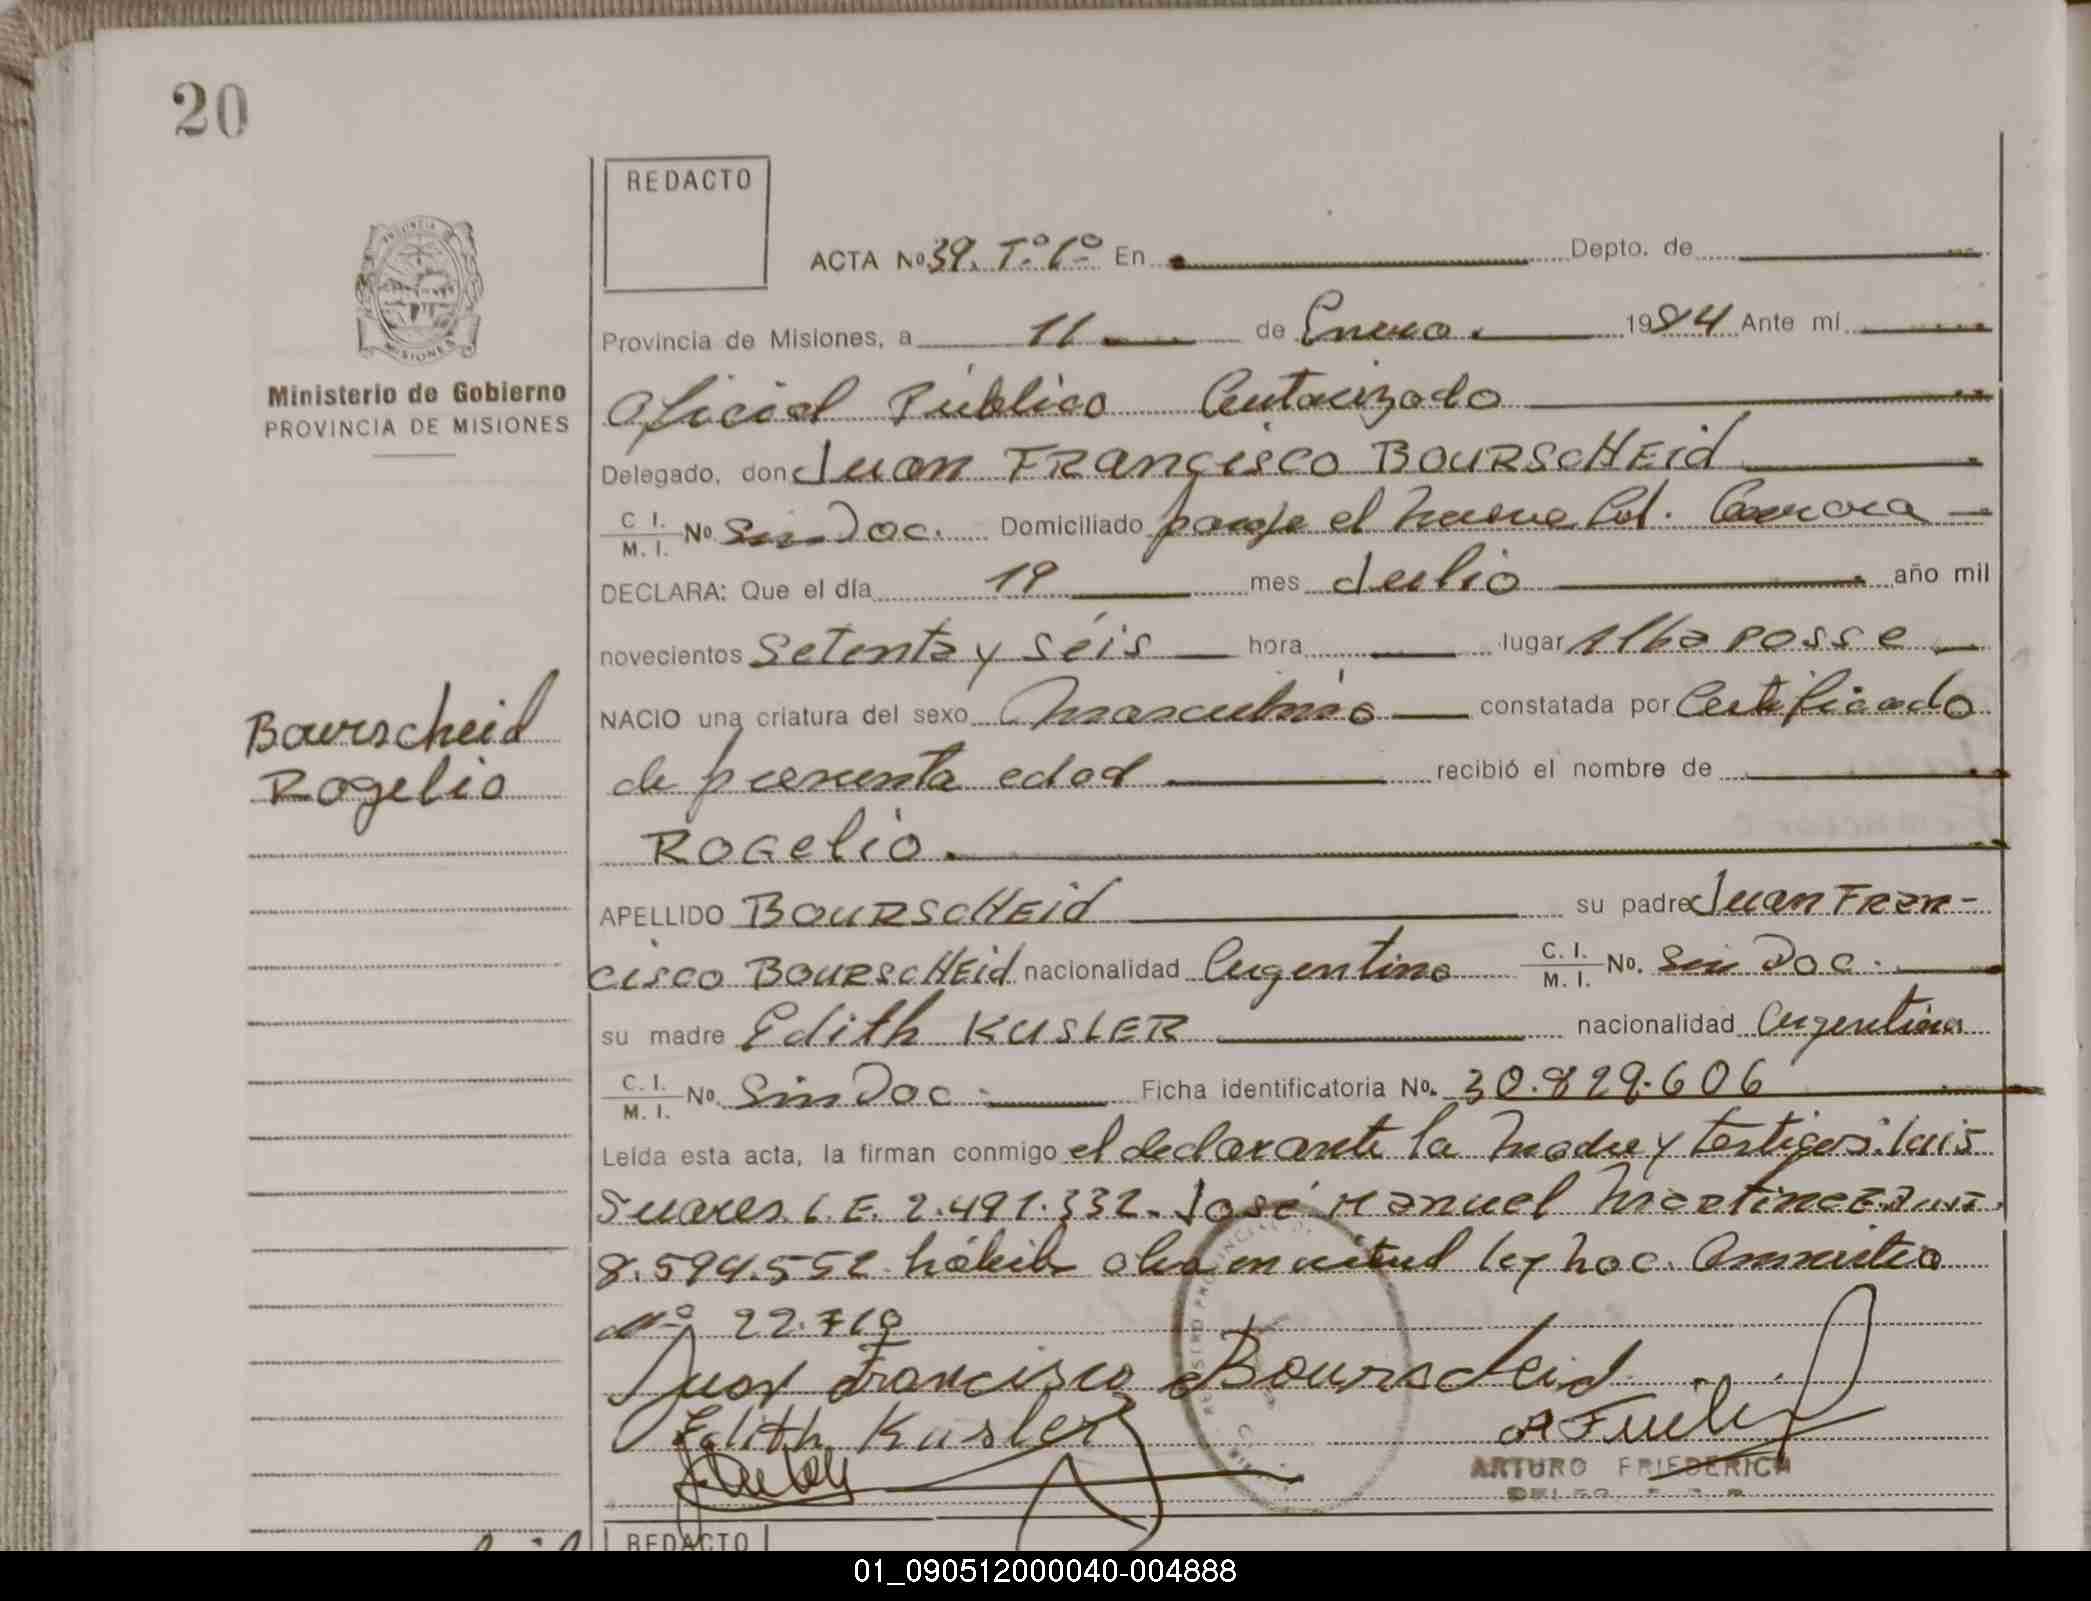 20
REDACTO
ACTA No 39. T.º 1º En Depto. de
Provincia de Misiones, a 11 de Enero. 1984 Ante mí
Ministerio de Gobierno
PROVINCIA DE MISIONES
Oficial Público Autorizado
Delegado, don Juan FRANCISCO BOURSCHEID
C. I. M. I. No Sin Doc. Domiciliado paraje el nueve Col.
DECLARA: Que el día 19 mes Julio año mil
novecientos Setenta y séis hora lugar Alba POSSE
Bourscheid
Rogelio
NACIO una criatura del sexo Masculino constatada por Certificado
de presunta edad recibió el nombre de
ROGELIO.
APELLIDO BOURSCHEID su padre Juan FRAN-
CISCO BOURSCHEID nacionalidad Argentino C. I. M. I. No. Sin Doc.
su madre Edith KUSLER nacionalidad Argentina
C. I. M. I. No. Sin Doc. Ficha identificatoria No. 30.829.606
Leída esta acta, la firman conmigo el declarante la madre y testigos: Luis
Suares L.E. 2.491.332. José Manuel Martinez
8.594.552 hábiles en virtud ley nac. Amnistia
Nº 22.710
Juan Francisco Bourscheid
Edith Kusler
ARTURO FRIEDERICH
REDACTO
01_090512000040-004888